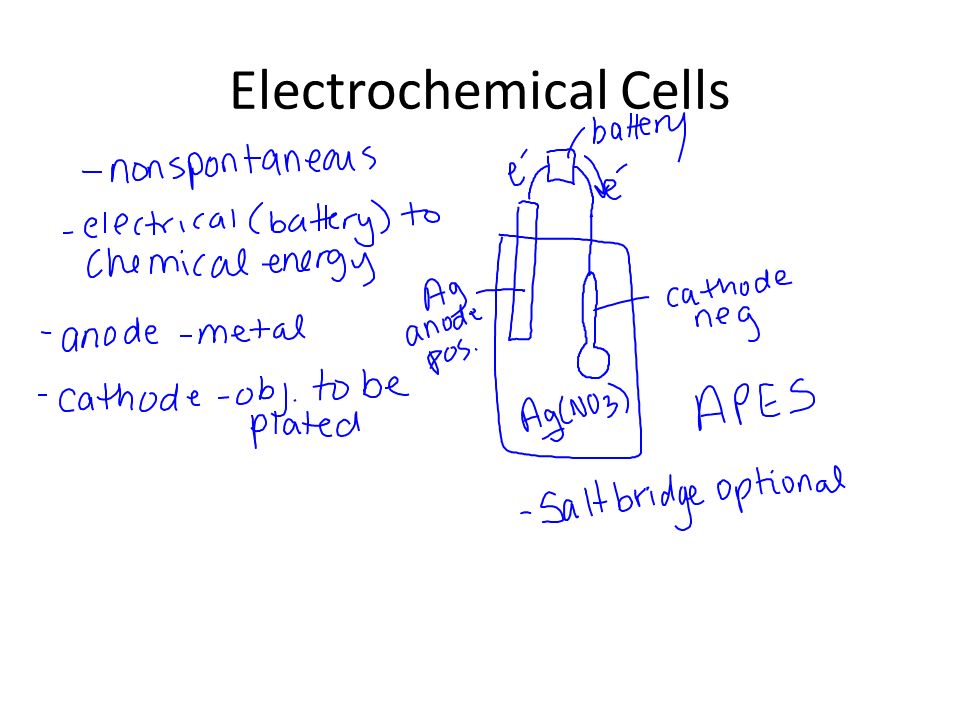 Electrochemical Cells
- nonspontaneous
- electrical (battery) to
chemical energy
- anode - metal
- cathode - obj. to be
plated
battery
e⁻
e⁻
Ag
anode
pos.
cathode
neg
Ag(NO3)
APES
- Salt bridge optional